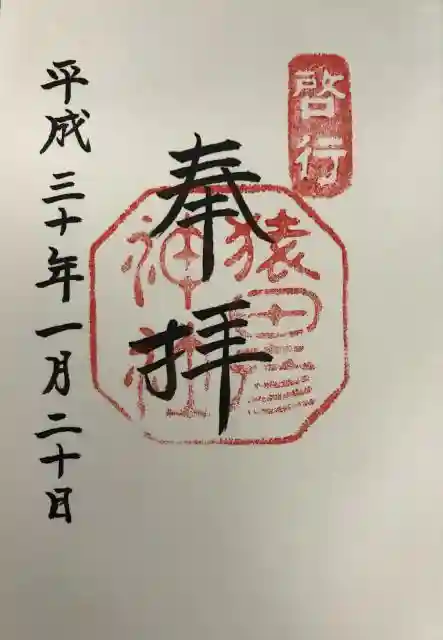 啓行
奉拝
猿田彦
神社
平成三十年一月二十日